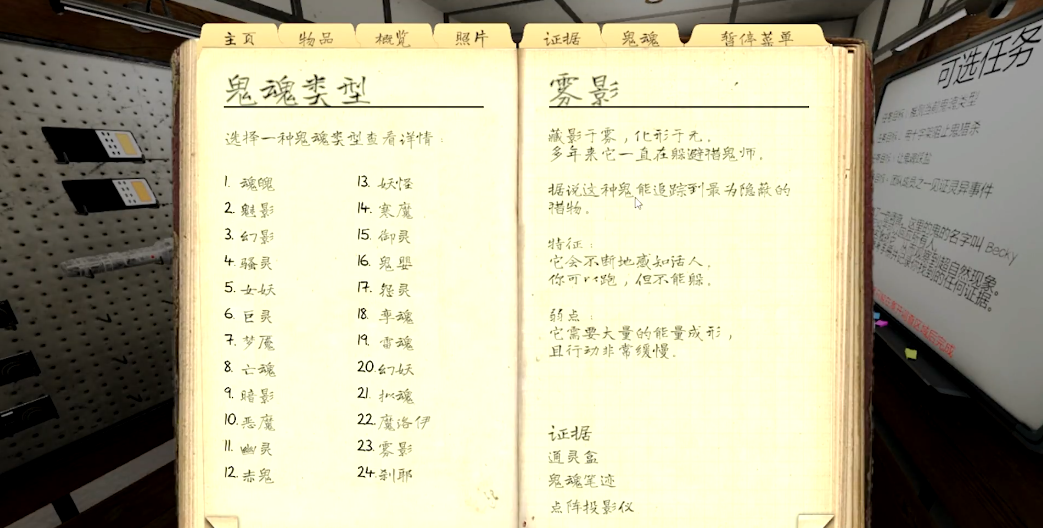 主页 物品 概览 照片 证据 鬼魂 暂停菜单
鬼魂类型
选择一种鬼魂类型查看详情：
1. 魂魄
2. 魅影
3. 幻影
4. 骚灵
5. 女妖
6. 巨灵
7. 梦魇
8. 亡魂
9. 暗影
10. 恶魔
11. 幽灵
12. 赤鬼
13. 妖怪
14. 寒魔
15. 御灵
16. 鬼婴
17. 怨灵
18. 孪魂
19. 雷魂
20. 幻妖
21. 拟魂
22. 魔洛伊
23. 雾影
24. 刹耶
雾影
藏影于雾，化形于无。
多年来它一直在躲避猎鬼师。
据说这种鬼能追踪到最为隐蔽的
猎物。
特征：
它会不断地感知活人。
你可以跑，但不能躲。
弱点：
它需要大量的能量成形，
且行动非常缓慢。
证据
通灵盒
鬼魂笔迹
点阵投影仪
可选任务
的名字叫 Becky
自然现象。
任何证据。